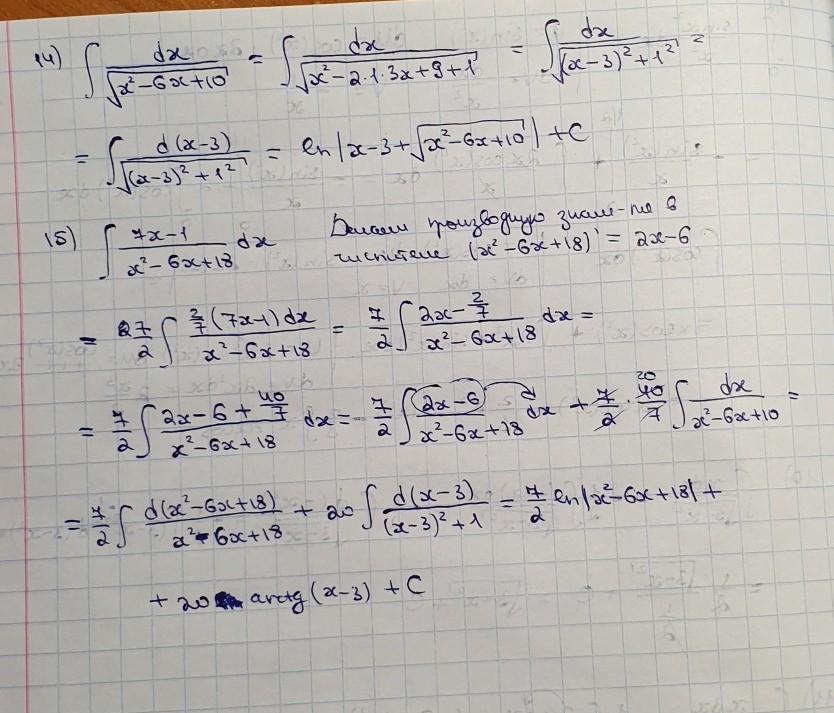 14) ∫ dx/√(x²-6x+10) = ∫ dx/√(x²-2·1·3x+9+1) = ∫ dx/√((x-3)²+1²) =
= ∫ d(x-3)/√((x-3)²+1²) = ln|x-3+√(x²-6x+10)| + C
15) ∫ (7x-1)/(x²-6x+18) dx Делаем производную знам-ля в
числителе (x²-6x+18)' = 2x-6
= 7/2 ∫ 2/7(7x-1)dx/(x²-6x+18) = 7/2 ∫ (2x-2/7)/(x²-6x+18) dx =
= 7/2 ∫ (2x-6+40/7)/(x²-6x+18) dx = 7/2 ∫ (2x-6)/(x²-6x+18) dx + 7/2 · 40/7 20 ∫ dx/(x²-6x+10) =
= 7/2 ∫ d(x²-6x+18)/(x²-6x+18) + 20 ∫ d(x-3)/((x-3)²+1) = 7/2 ln|x²-6x+18| +
+ 20 arctg(x-3) + C